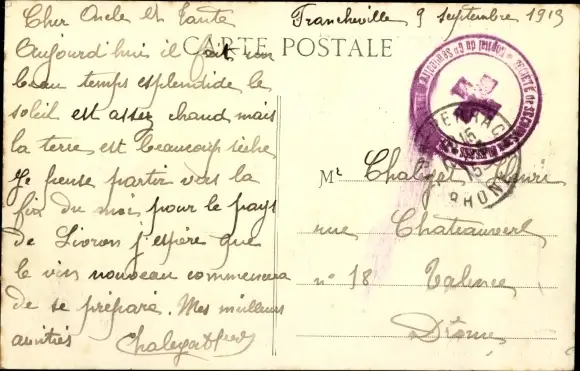 Cher Oncle et Tante
Francheville 9 septembre 1915
Aujourd'hui il fait un
CARTE POSTALE
beau temps esplendide le
soleil est assez chaud mais
la terre est beaucoup sèche
Je pense partir vers la
fin du mois pour le pays
de Livron j'espère que
le vin nouveau commencera
de se préparé. Mes meilleurs
amitiés
Mr Henri
rue Chateauvert
n° 18 Valence
Drôme
RHONE
15